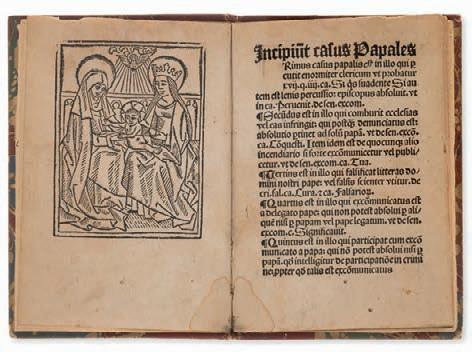 Incipiũt casus Papales
Rimus casus papalis ẽ in illo qui p
cutit enormiter clericum vt probatur
xvij. q. iiij. ca. Si q̃s suadente Si au
tem est leuis percussio: episcopus absoluit. vt
in ca. peruenit. de sen. excom.
¶Secũdus est in illo qui comburit ecclesias
vel eas infringit: qui postq̃ denunciatus est
absolutio ptinet ad solũ papã. vt de sen. excom.
ca. Cõquesti. Item idem est de quocunq alio
incendiario si forte excõmunicetur vel publi
cetur. vt de sen. excom. ca. Tua.
¶Tertius est in illo qui falsificat litteras do
mini nostri pape: vel falsis scienter vtitur. de
cri. fal. ca. Dura. et ca. Fallarior.
¶Quartus est in illo qui excõmunicatus est
a delegato pape: qui non potest absolui p ali
quẽ nisi p papam vel pape legatum. vt de sen.
excom. c. Significauit.
¶Quintus est in illo qui participat cum excõ
municato a papa: qui nõ potest absolui nisi p
papã. qð intelligitur de participatiõe in crimi
ne: ppter qð talis est excõmunicatus